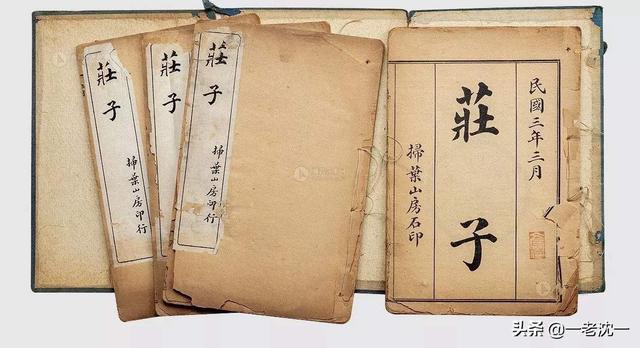 民國三年三月
莊子
掃葉山房石印
莊子
掃葉山房印行
莊子
莊子
掃葉山房印行
头条 @一老沈一